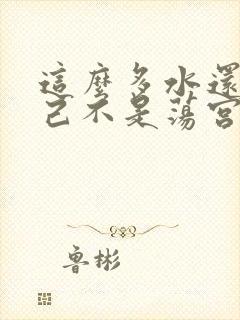 這麼多水還
己不是蕩宮
魯彬